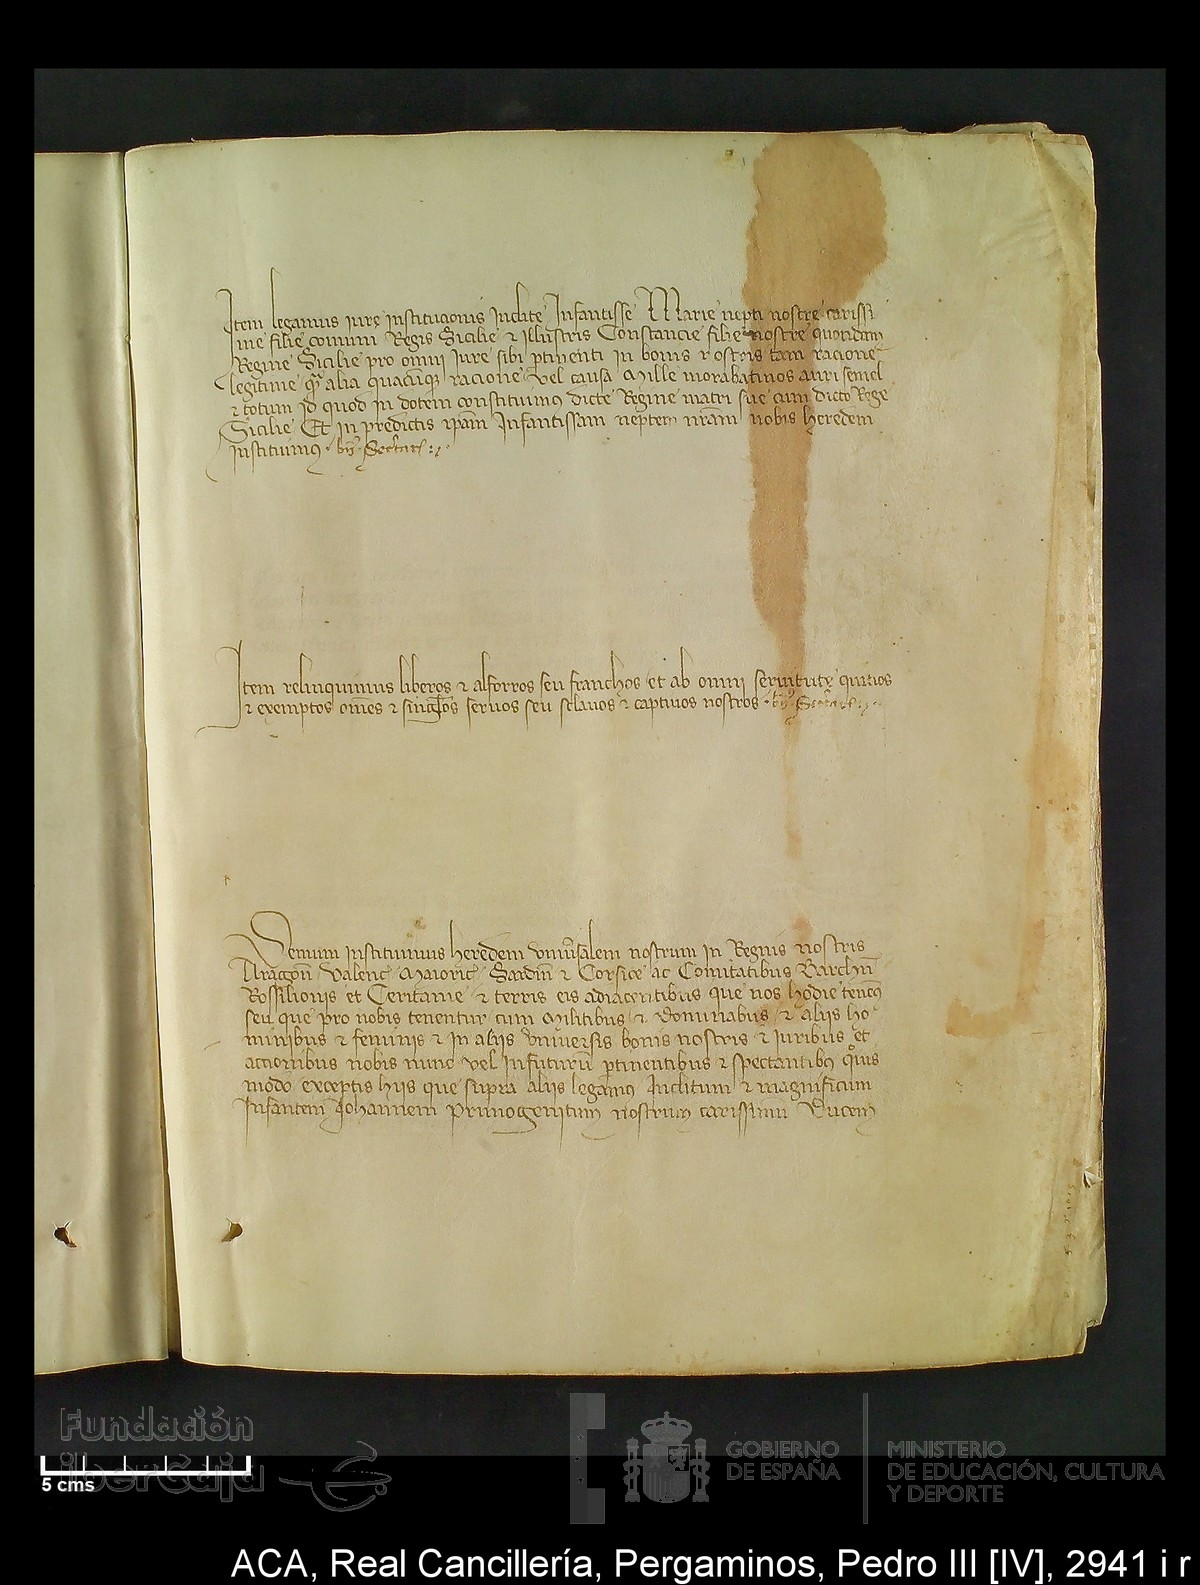 Item legamus iure institucionis Inclite Infantisse Marie nepti nostre carissi
me filie comuni Regis Sicilie & Illustris Constancie filie nostre quondam
Regine Sicilie pro omni iure sibi ptinenti in bonis nostris tam racione
legitime qm alia quacunqz racione vel causa Mille morabatinos auri semel
& totum id quod in dotem constituimus dicte Regine matri sue cum dicto Rege
Sicilie Et in predictis ipam Infantissam neptem nram nobis heredem
instituimus
Item relinquimus liberos & alforros seu franchos et ab omni servitute quitios
& exemptos omes & singlos servos seu sclavos & captivos nostros
Demum instituimus heredem universalem nostrum in Regnis nostris
Aragon Valenc Maioric Sardin & Corsice ac Comitatibus Barchn
Rossilionis et Ceritanie & terris eis adiacentibus que nos hodie tenemus
seu que pro nobis tenentur cum militibus & dominabus & aliis ho
minibus & feminis & in aliis universis bonis nostris & iuribus et
actionibus nobis nunc vel infuturu ptinentibus & spectantibus quis
modo exceptis hiis que supra aliis legamus Inclitum & magnificum
Infantem Johannem primogenitum nostrum carissimu Ducem
Fundación
iberCaja
5 cms
GOBIERNO
DE ESPAÑA
MINISTERIO
DE EDUCACIÓN, CULTURA
Y DEPORTE
ACA, Real Cancillería, Pergaminos, Pedro III [IV], 2941 i r